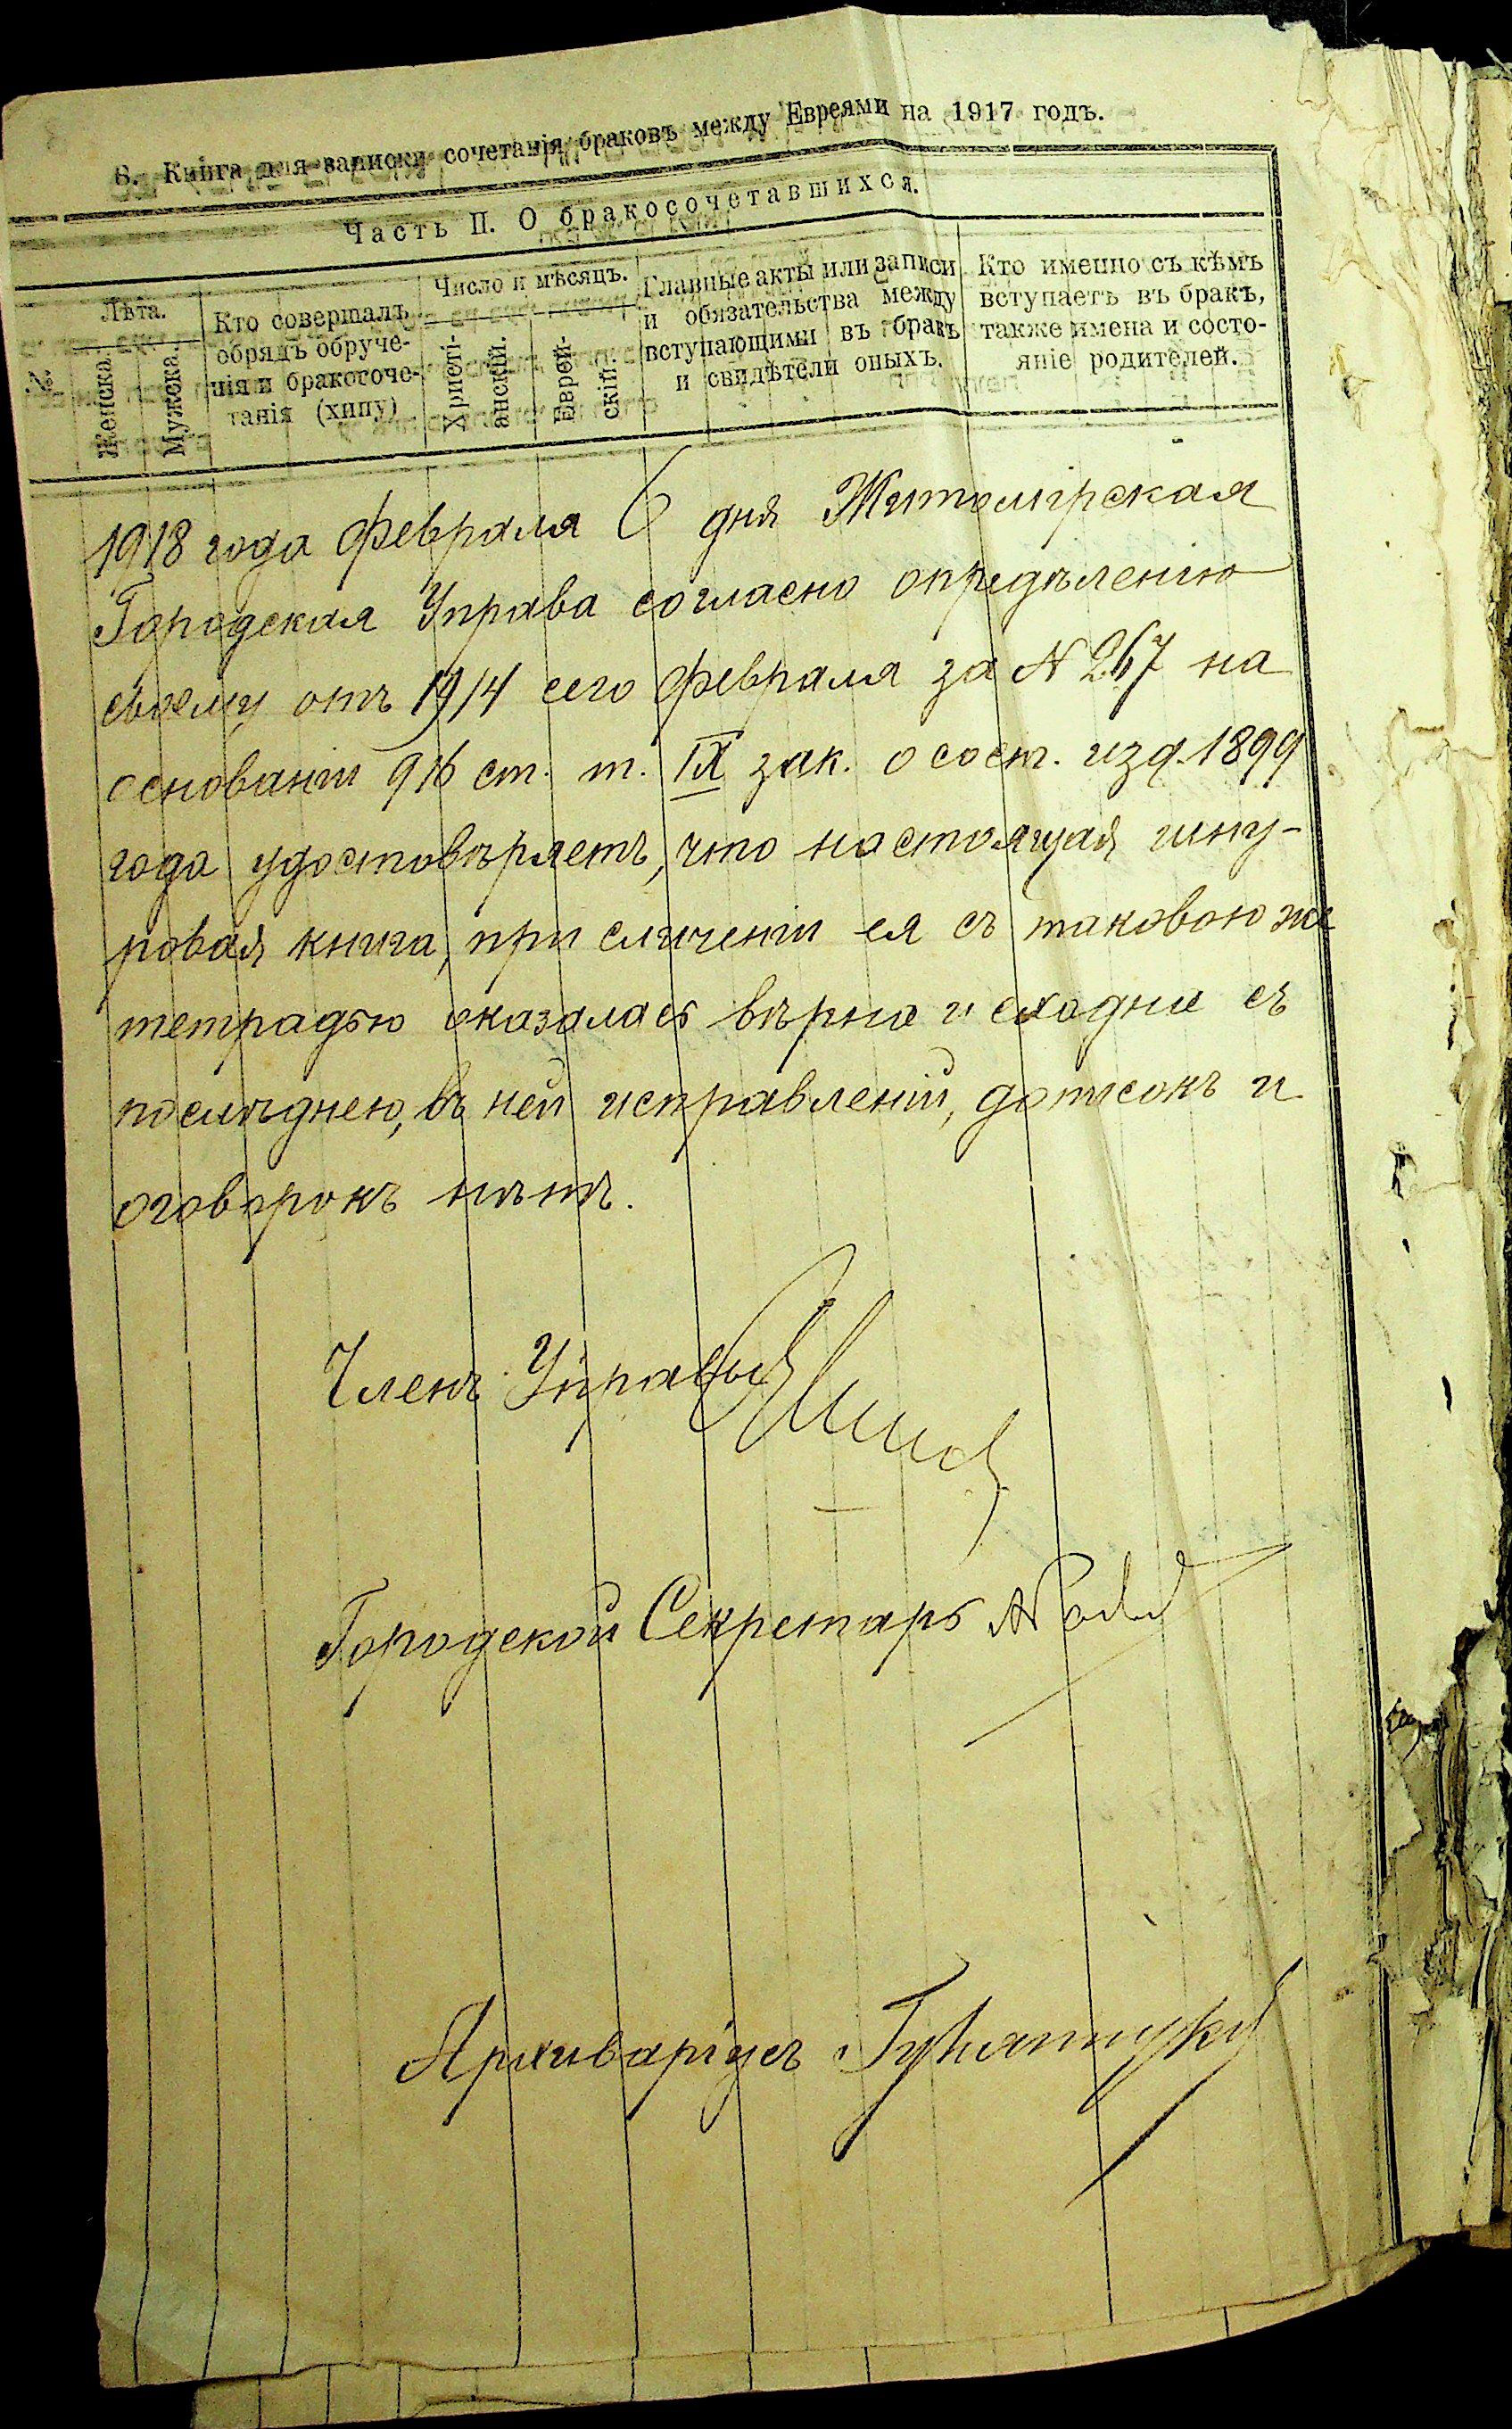 6. Книга для записки сочетанія браковъ между Евреями на 1917 годъ.
Часть II. О бракосочетавшихся.
№.
Лѣта.
Женска.
Мужска.
Кто совершалъ
обрядъ обруче-
нія и бракосоче-
танія (хипу)
Число и мѣсяцъ.
Христі-
анскій.
Еврей-
скій.
Главные акты или записи
и обязательства между
вступающими въ бракъ
и свидѣтели оныхъ.
Кто именно съ кѣмъ
вступаетъ въ бракъ,
также имена и состо-
яніе родителей.
1918 года Февраля 6 дня Житомірская
Городская Управа согласно опредѣленію
своему отъ 19/4 сего Февраля за N 267 на
основаніи 916 ст. т. IX зак. о сост. изд. 1899
года удостовѣряетъ, что настоящая шну-
ровая книга, при сличеніи ея съ таковою же
тетрадью оказалась вѣрна и сходна съ
послѣднею, въ ней исправленій, дописокъ и
оговорокъ нѣтъ.
Членъ Управы
Городской Секретарь
Архиваріусъ